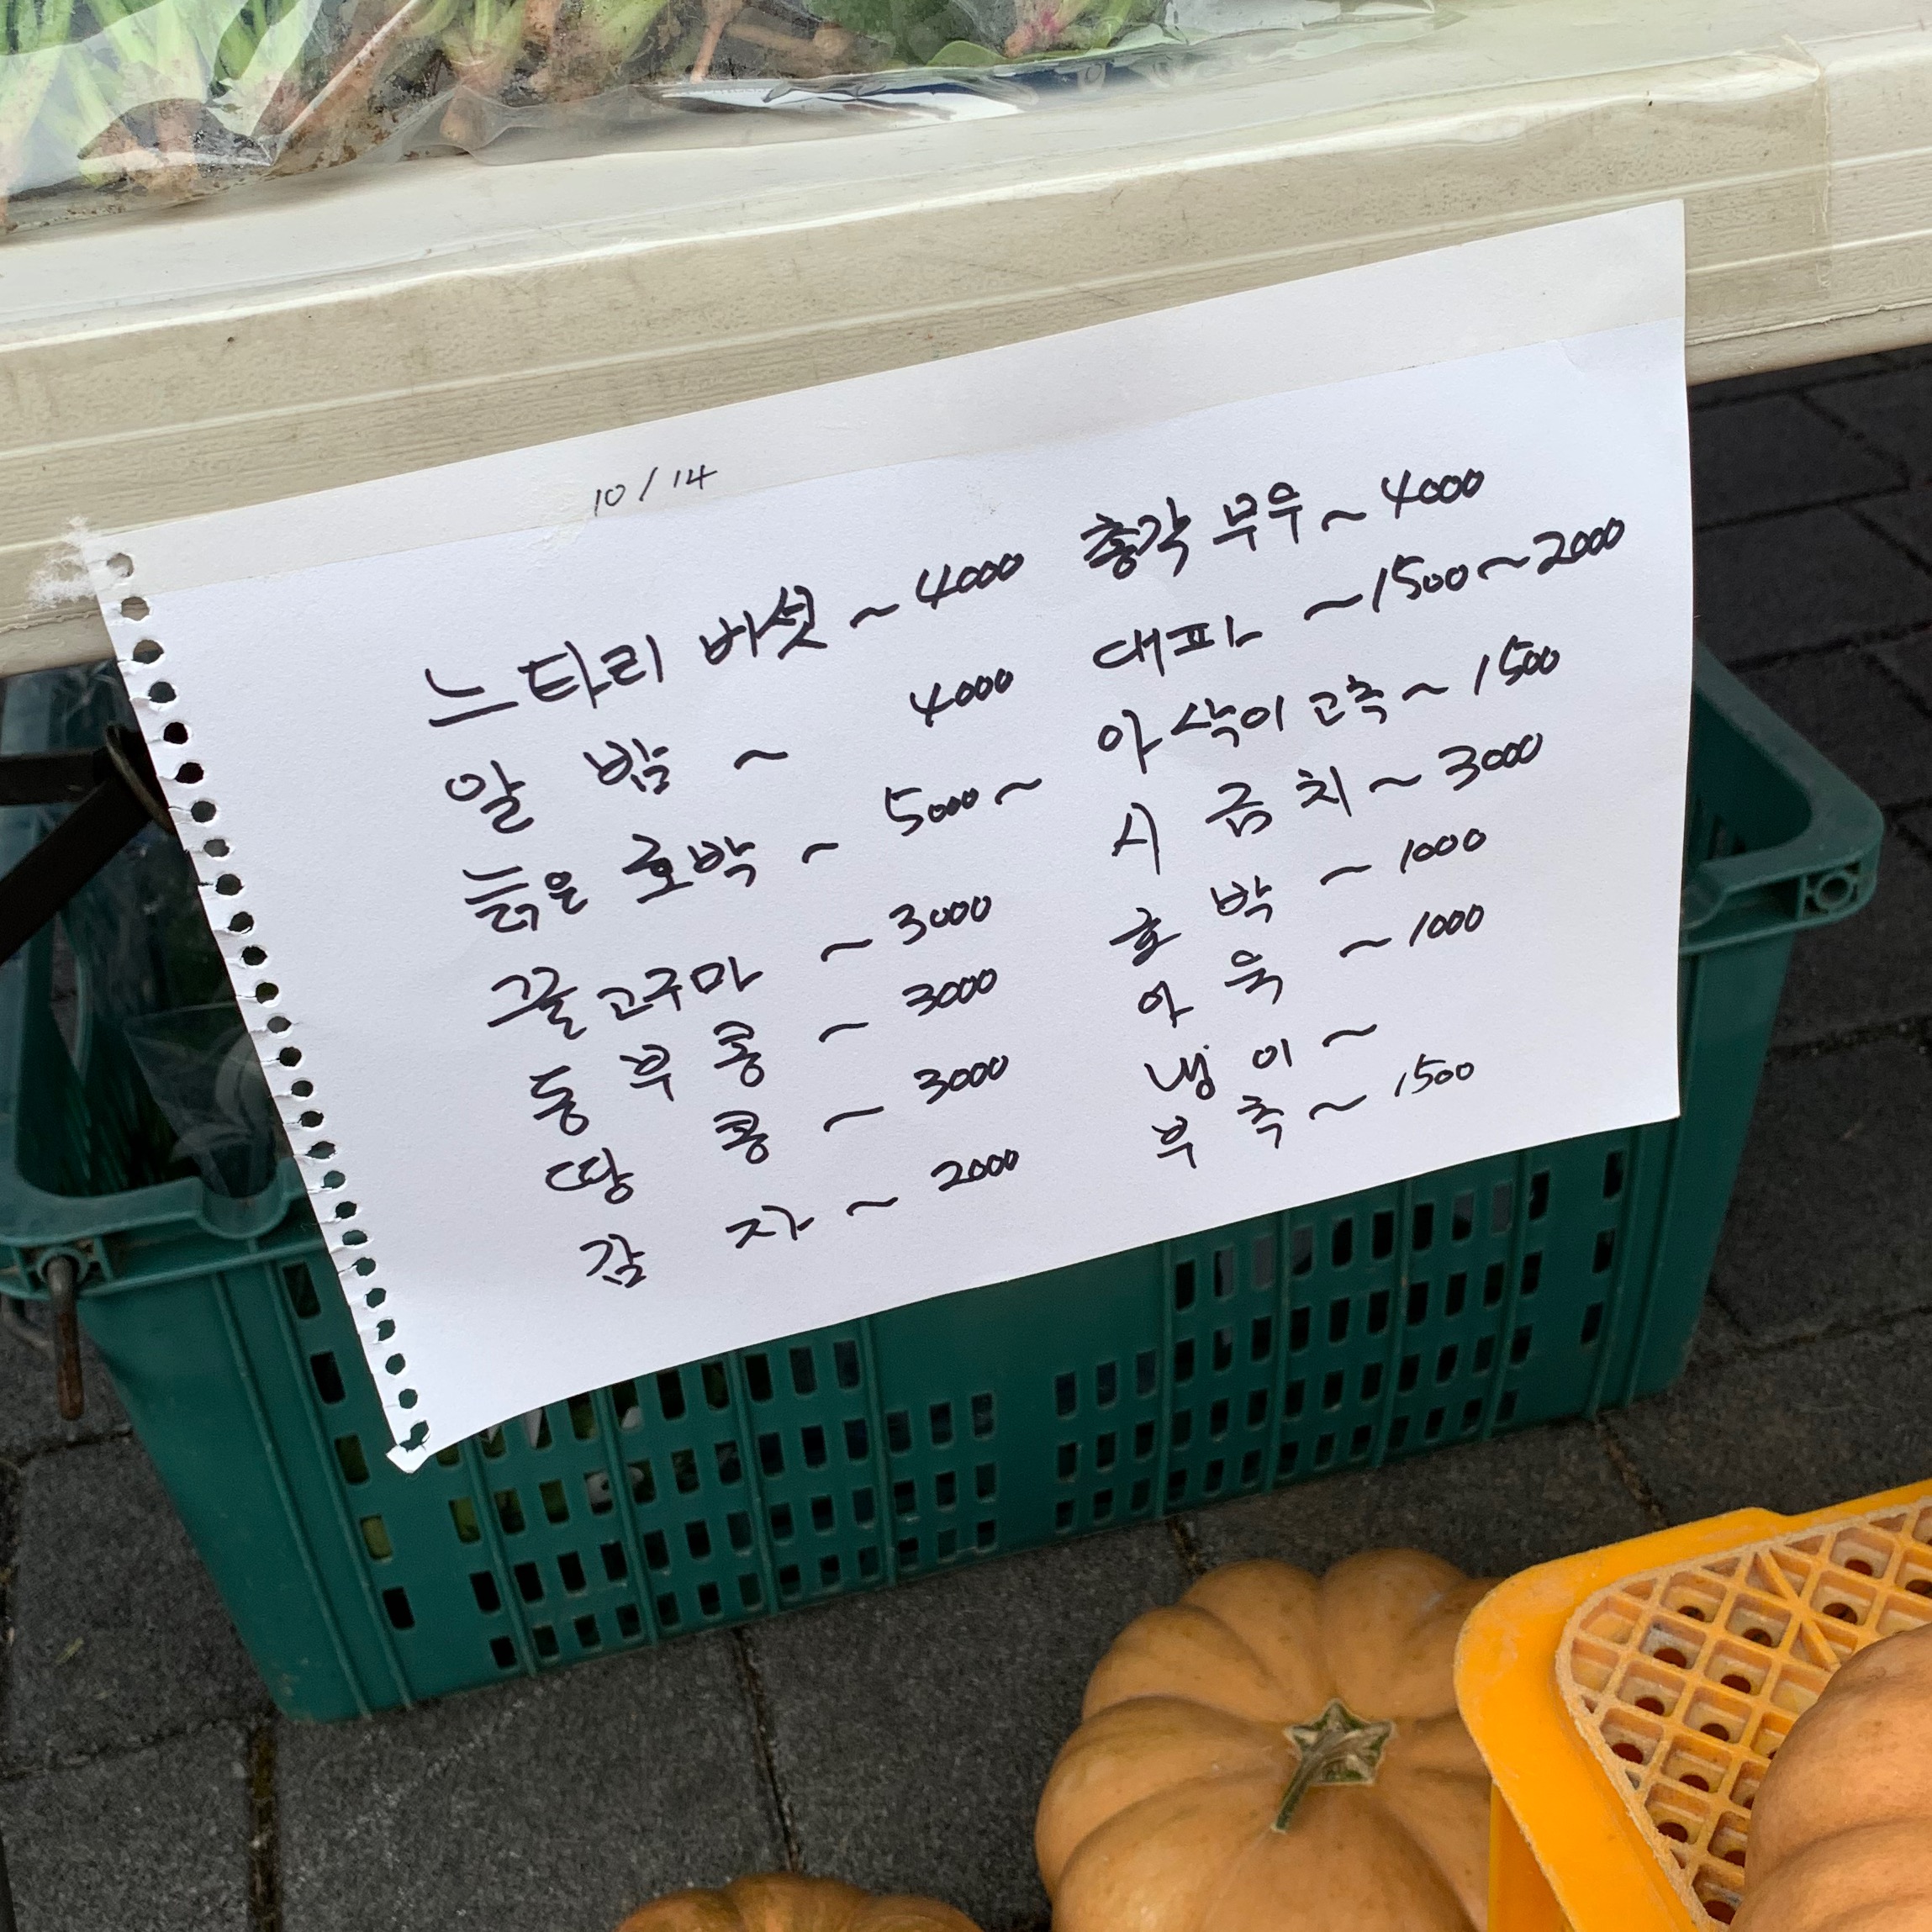 10/14
느타리 버섯 ~ 4000
알 밤 ~ 4000
늙은 호박 ~ 5000~
고구마 ~ 3000
동부콩 ~ 3000
땅 콩 ~ 3000
감 자 ~ 2000
총각 무우 ~ 4000
대파 ~ 1500~2000
아삭이 고추 ~ 1500
시 금 치 ~ 3000
호 박 ~ 1000
아 욱 ~ 1000
냉 이 ~
부 추 ~ 1500